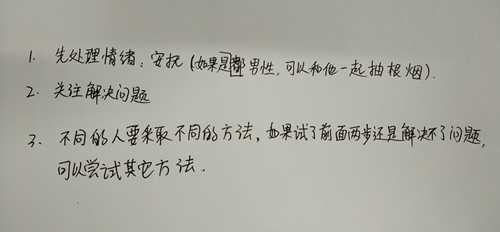 1. 先处理情绪：安抚（如果是都男性，可以和他一起抽根烟）.
2. 关注解决问题
3. 不同的人要采取不同的方法，如果试了前面两步还是解决不了问题，
可以尝试其它方法.